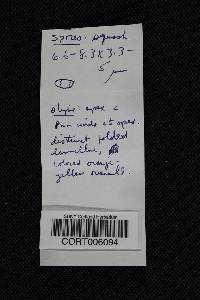 Spores: squash
6.6-8.3 X 3.3-
5 µ
apex c
at apex.
distinct folded
lamellae,
colored orange-
yellow overall.
SUNY Cortland Herbarium
CORT006094